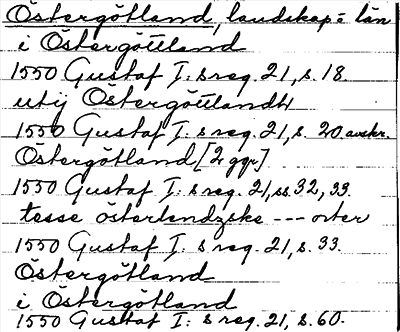 Östergötland, landskap = län
i Östergöttland
1550 Gustaf I: s reg. 21, s. 18
utij Östergöttlandh
1550 Gustaf I: s reg. 21, s. 20 avskr.
Östergötland [2 ggr]
1550 Gustaf I: s reg. 21, ss. 32, 33.
tesse österlendzske --- orter
1550 Gustaf I: s reg. 21, s. 33.
Östergötland
i Östergötland
1550 Gustaf I: s reg. 21, s. 60.